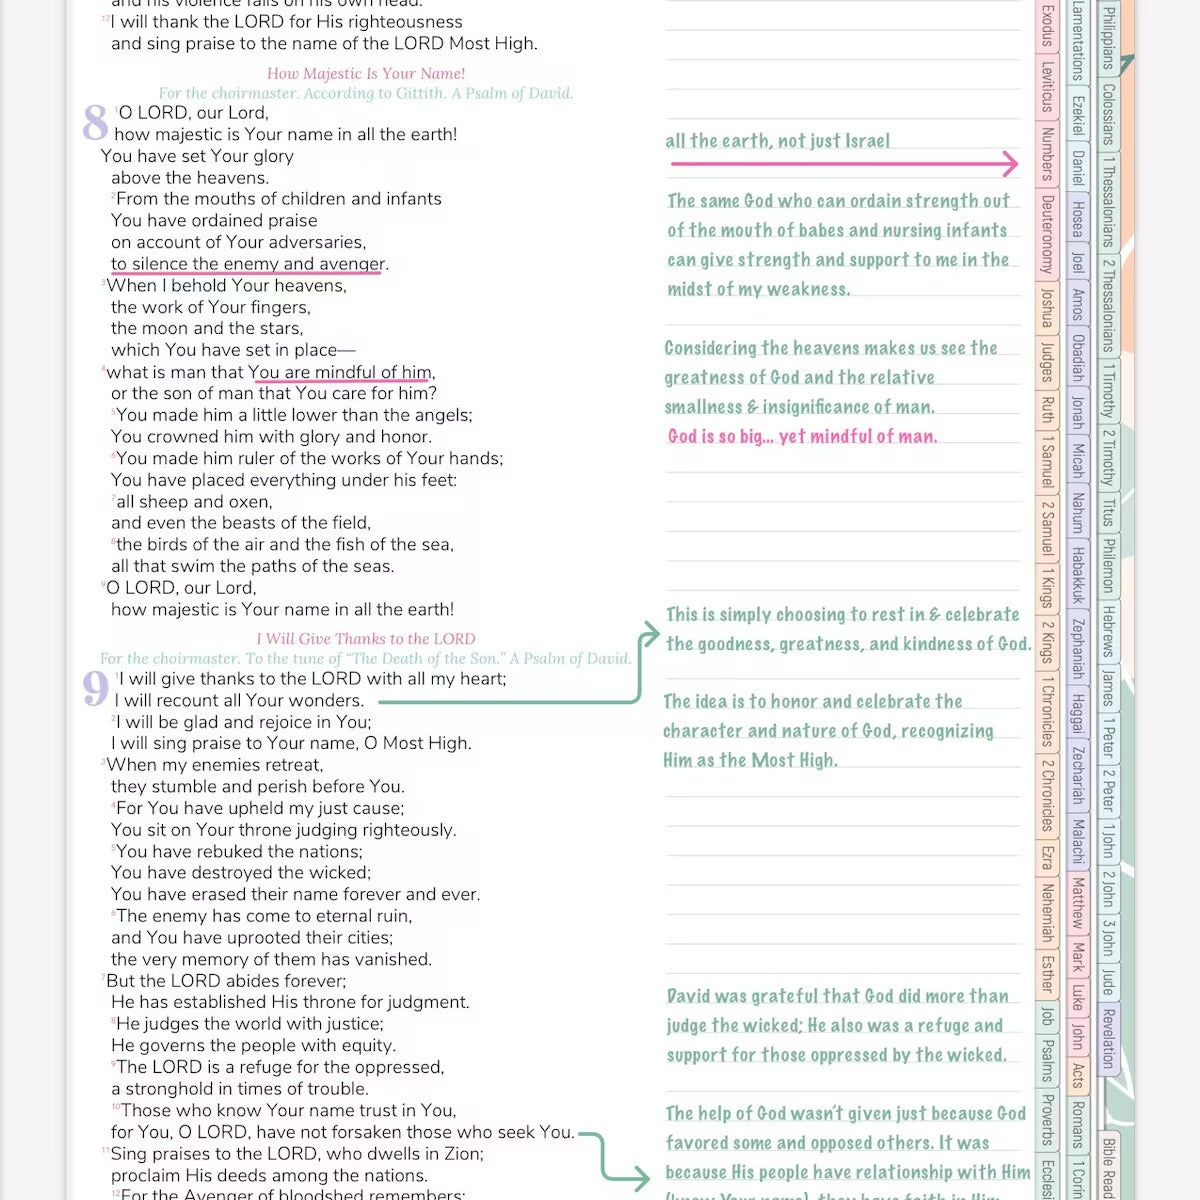 and his violence falls on his own head.
17I will thank the LORD for His righteousness
and sing praise to the name of the LORD Most High.
How Majestic Is Your Name!
For the choirmaster. According to Gittith. A Psalm of David.
8 1O LORD, our Lord,
how majestic is Your name in all the earth!
You have set Your glory
above the heavens.
2From the mouths of children and infants
You have ordained praise
on account of Your adversaries,
to silence the enemy and avenger.
3When I behold Your heavens,
the work of Your fingers,
the moon and the stars,
which You have set in place—
4what is man that You are mindful of him,
or the son of man that You care for him?
5You made him a little lower than the angels;
You crowned him with glory and honor.
6You made him ruler of the works of Your hands;
You have placed everything under his feet:
7all sheep and oxen,
and even the beasts of the field,
8the birds of the air and the fish of the sea,
all that swim the paths of the seas.
9O LORD, our Lord,
how majestic is Your name in all the earth!
I Will Give Thanks to the LORD
For the choirmaster. To the tune of “The Death of the Son.” A Psalm of David.
9 1I will give thanks to the LORD with all my heart;
I will recount all Your wonders.
2I will be glad and rejoice in You;
I will sing praise to Your name, O Most High.
3When my enemies retreat,
they stumble and perish before You.
4For You have upheld my just cause;
You sit on Your throne judging righteously.
5You have rebuked the nations;
You have destroyed the wicked;
You have erased their name forever and ever.
6The enemy has come to eternal ruin,
and You have uprooted their cities;
the very memory of them has vanished.
7But the LORD abides forever;
He has established His throne for judgment.
8He judges the world with justice;
He governs the people with equity.
9The LORD is a refuge for the oppressed,
a stronghold in times of trouble.
10Those who know Your name trust in You,
for You, O LORD, have not forsaken those who seek You.
11Sing praises to the LORD, who dwells in Zion;
proclaim His deeds among the nations.
12For the Avenger of bloodshed remembers;
all the earth, not just Israel
The same God who can ordain strength out
of the mouth of babes and nursing infants
can give strength and support to me in the
midst of my weakness.
Considering the heavens makes us see the
greatness of God and the relative
smallness & insignificance of man.
God is so big... yet mindful of man.
This is simply choosing to rest in & celebrate
the goodness, greatness, and kindness of God.
The idea is to honor and celebrate the
character and nature of God, recognizing
Him as the Most High.
David was grateful that God did more than
judge the wicked; He also was a refuge and
support for those oppressed by the wicked.
The help of God wasn't given just because God
favored some and opposed others. It was
because His people have relationship with Him
(know Your name), they have faith in Him
Exodus
Leviticus
Numbers
Deuteronomy
Joshua
Judges
Ruth
1 Samuel
2 Samuel
1 Kings
2 Kings
1 Chronicles
2 Chronicles
Ezra
Nehemiah
Esther
Job
Psalms
Proverbs
Eccles
Lamentations
Ezekiel
Daniel
Hosea
Joel
Amos
Obadiah
Jonah
Micah
Nahum
Habakkuk
Zephaniah
Haggai
Zechariah
Malachi
Matthew
Mark
Luke
John
Acts
Romans
1 Corin
Philippians
Colossians
1 Thessalonians
2 Thessalonians
1 Timothy
2 Timothy
Titus
Philemon
Hebrews
James
1 Peter
2 Peter
1 John
2 John
3 John
Jude
Revelation
Bible Read